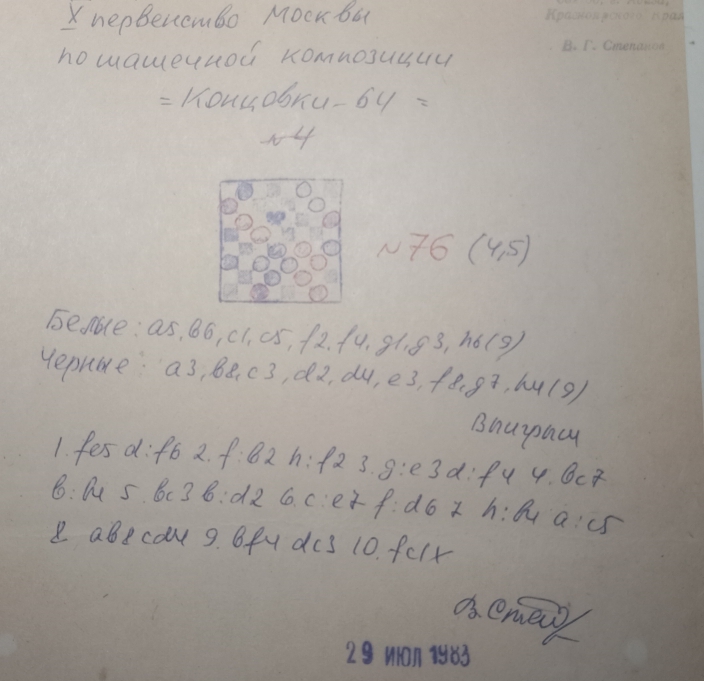 X первенство Москвы
по шашечной композиции
= Концовки-64 =
№4
Красноярского края
В. Г. Степанов
№76 (4,5)
Белые: a5, b6, c1, c5, f2, f4, g1, g3, h6 (9)
Черные: a3, b8, c3, d2, d4, e3, f8, g7, h4 (9)
Выигрыш
1. fe5 d:f6 2. f:b2 h:f2 3. g:e3 d:f4 4. bc7
b:b4 5. bc3 b:d2 6. c:e7 f:d6 7 h:b4 a:c5
8. ab8 cd4 9. bf4 dc3 10. fc1x
29 ИЮЛ 1983